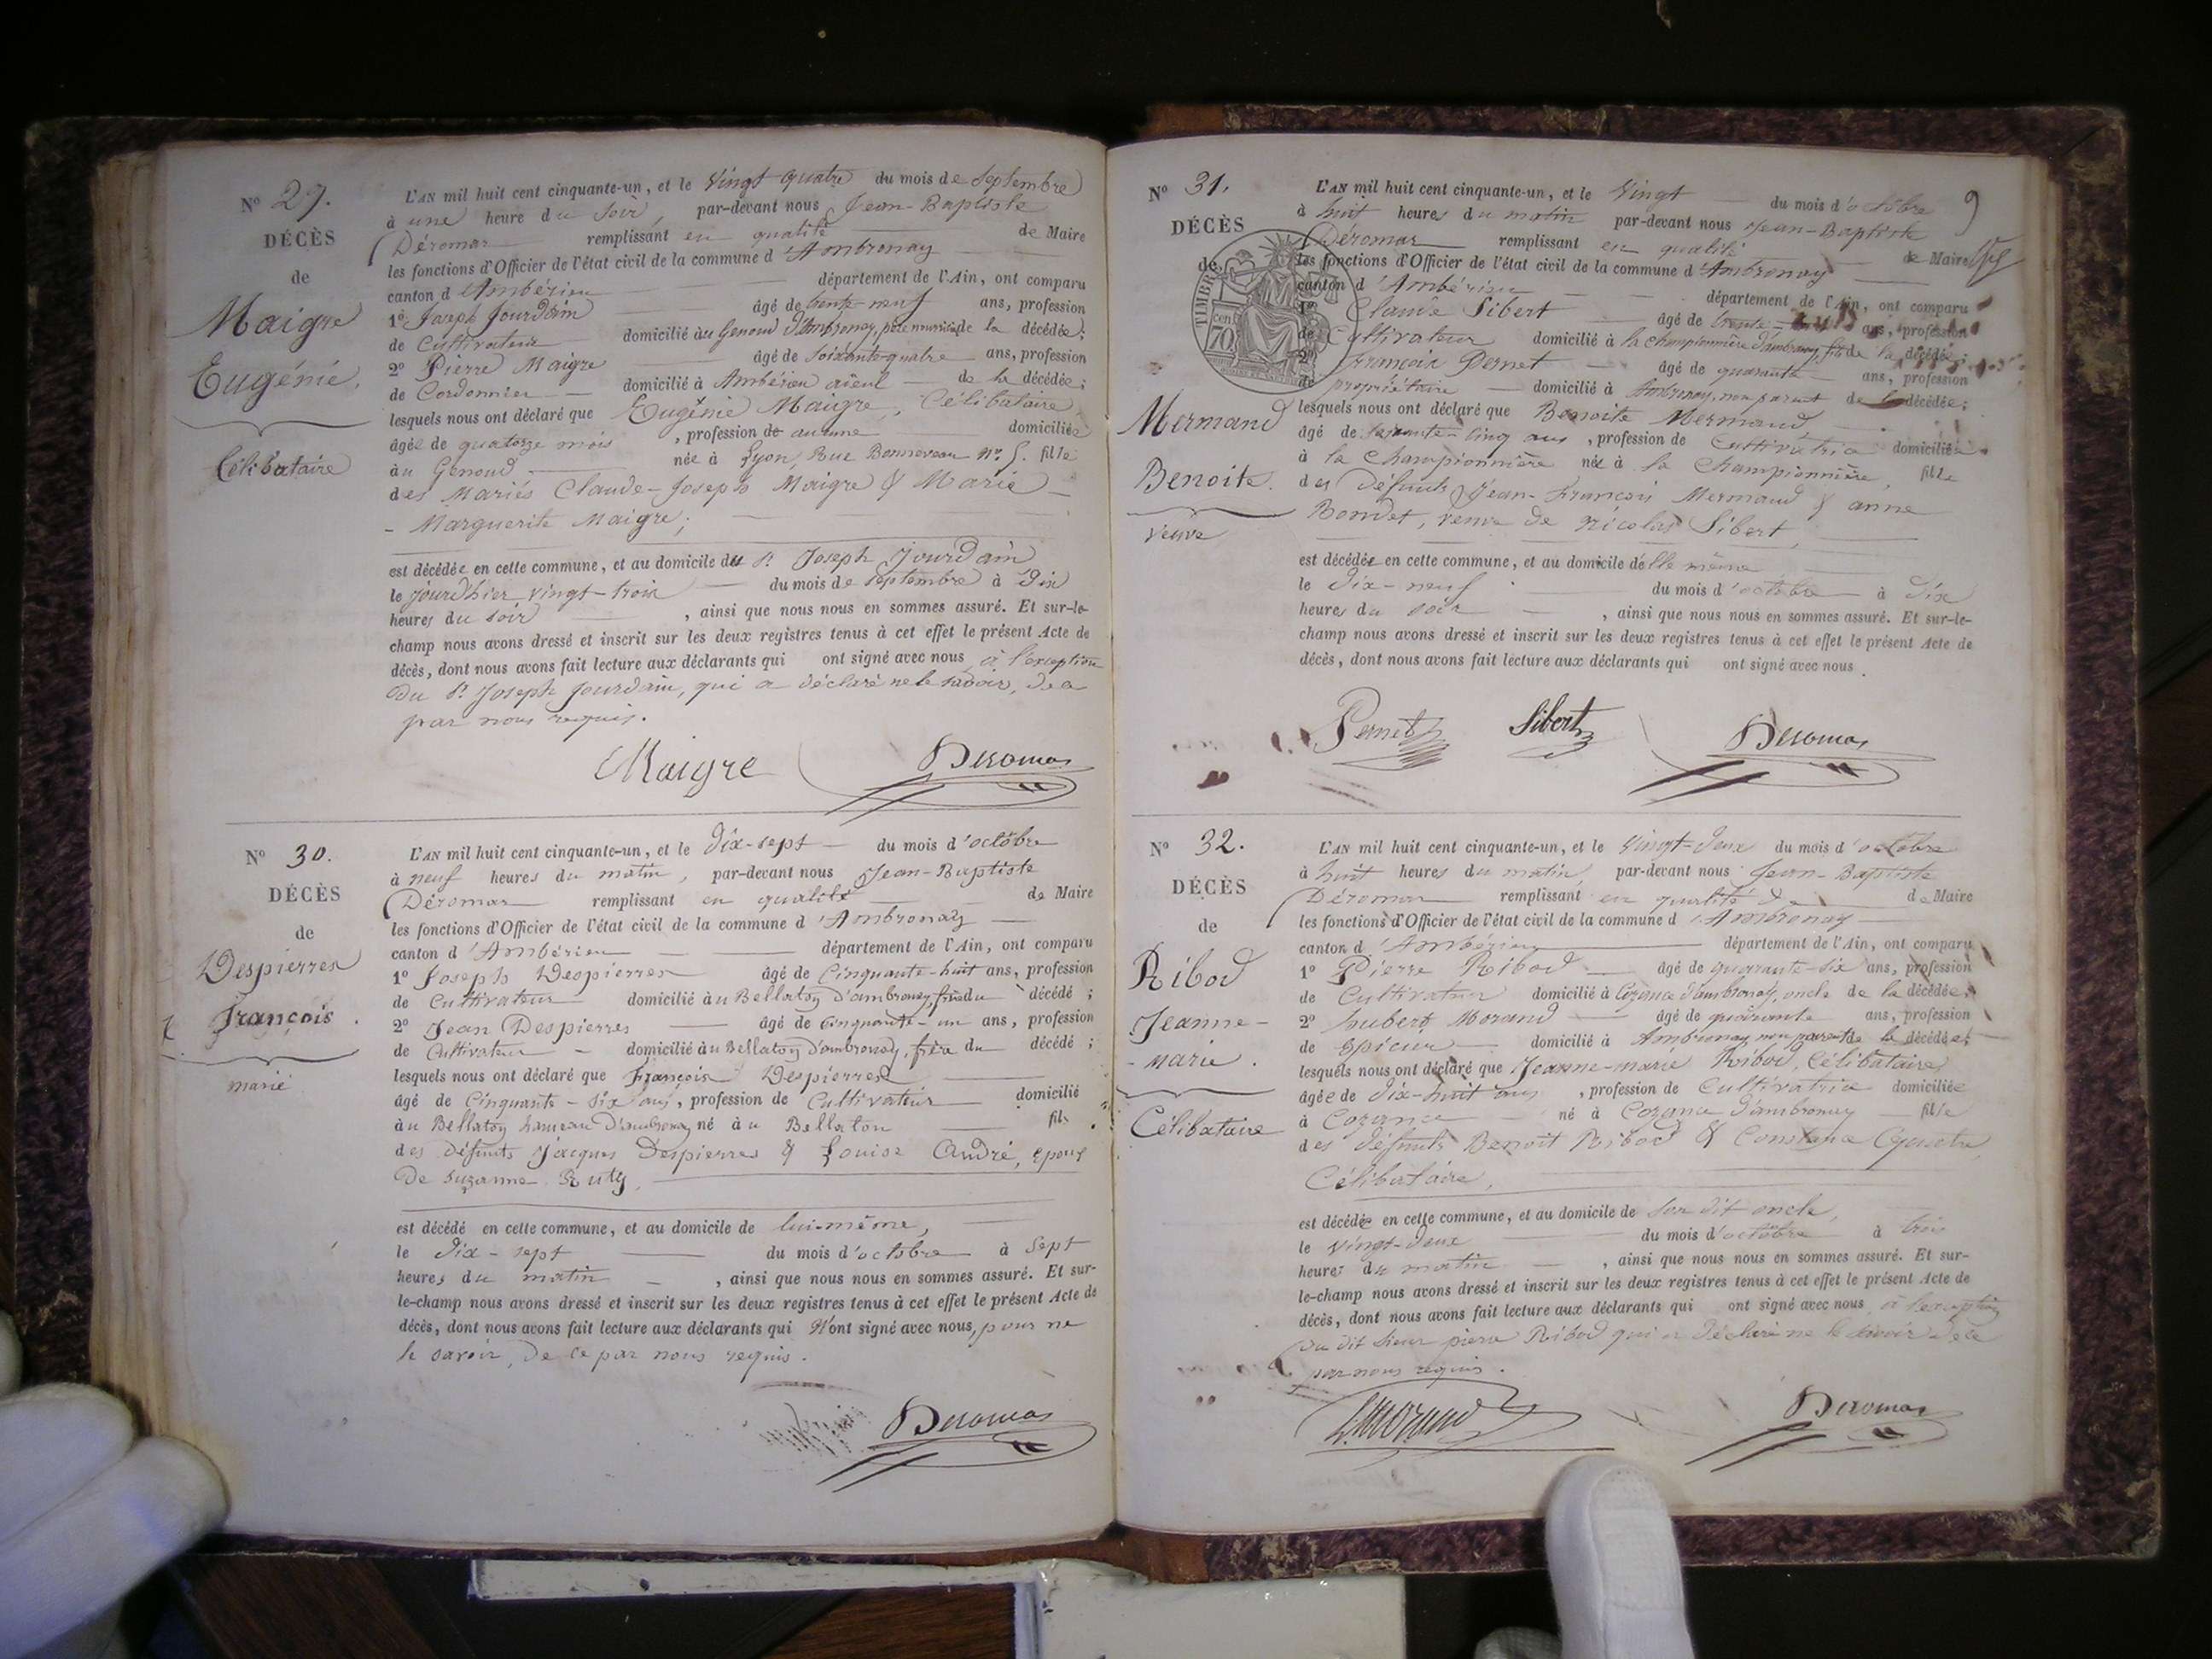 Nº 29.
DÉCÈS
de
Maigre
Eugénie.
Célibataire
L'AN mil huit cent cinquante-un, et le Vingt quatre du mois de Septembre
à une heure du soir, par-devant nous Jean-Baptiste
Déromas remplissant en qualité de Maire
les fonctions d'Officier de l'état civil de la commune d'Ambronay
canton d'Ambérieu département de l'Ain, ont comparu
1º Joseph Jourdain âgé de trente-neuf ans, profession
de Cultivateur domicilié au Genoud d'Ambronay, père nourricier de la décédée;
2º Pierre Maigre âgé de soixante-quatre ans, profession
de Cordonnier domicilié à Ambérieu aïeul de la décédée;
lesquels nous ont déclaré que Eugénie Maigre, Célibataire
âgée de quatorze mois, profession de aucune domiciliée
au Genoud née à Lyon, Rue Bonneveau nº 5. fille
des Mariés Claude-Joseph Maigre & Marie-
- Marguerite Maigre;
est décédée en cette commune, et au domicile du Sr Joseph Jourdain
le jourd'hier vingt-trois du mois de septembre à dix
heures du soir, ainsi que nous nous en sommes assuré. Et sur-le-
champ nous avons dressé et inscrit sur les deux registres tenus à cet effet le présent Acte de
décès, dont nous avons fait lecture aux déclarants qui ont signé avec nous à l'exception
du Sr Joseph Jourdain, qui a déclaré ne le savoir, de ce
par nous requis.
Maigre Deromas
Nº 30.
DÉCÈS
de
Despierres
François.
marié
L'AN mil huit cent cinquante-un, et le dix-sept du mois d'octobre
à neuf heures du matin, par-devant nous Jean-Baptiste
Déromas remplissant en qualité de Maire
les fonctions d'Officier de l'état civil de la commune d'Ambronay
canton d'Ambérieu département de l'Ain, ont comparu
1º Joseph Despierres âgé de Cinquante-huit ans, profession
de Cultivateur domicilié au Bellaton d'ambronay, frère du décédé;
2º Jean Despierres âgé de cinquante-un ans, profession
de Cultivateur domicilié au Bellaton d'ambronay, frère du décédé;
lesquels nous ont déclaré que François Despierres
âgé de Cinquante-six ans, profession de Cultivateur domicilié
au Bellaton hameau d'ambronay né à u Bellaton fils
des défunts Jacques Despierres & Louise André, époux
de Suzanne Ruty,
est décédé en cette commune, et au domicile de lui-même,
le dix-sept du mois d'octobre à Sept
heures du matin, ainsi que nous nous en sommes assuré. Et sur-
le-champ nous avons dressé et inscrit sur les deux registres tenus à cet effet le présent Acte de
décès, dont nous avons fait lecture aux déclarants qui N'ont signé avec nous, pour ne
le savoir, de ce par nous requis.
Deromas
9
Nº 31.
DÉCÈS
de
TIMBRE
70 cent
Mermand
Benoite.
veuve
L'AN mil huit cent cinquante-un, et le Vingt du mois d'octobre
à huit heures du matin par-devant nous Jean-Baptiste
Déromas remplissant en qualité de Maire
les fonctions d'Officier de l'état civil de la commune d'Ambronay
canton d'Ambérieu département de l'Ain, ont comparu
1º Claude Sibert âgé de trente- ans, profession
de Cultivateur domicilié à la championnière d'ambronay, fils de la décédée;
2º François Pernet âgé de quarante ans, profession
de propriétaire domicilié à Ambronay, non parent de la décédée;
lesquels nous ont déclaré que Benoite Mermand
âgé de soixante-cinq ans, profession de Cultivatrice domiciliée
à la Championnière née à la Championnière, fille
des défunts Jean-François Mermand & anne
Bondet, veuve de Nicolas Sibert,
est décédée en cette commune, et au domicile d'elle même
le dix-neuf du mois d'octobre à dix
heures du soir, ainsi que nous nous en sommes assuré. Et sur-le-
champ nous avons dressé et inscrit sur les deux registres tenus à cet effet le présent Acte de
décès, dont nous avons fait lecture aux déclarants qui ont signé avec nous.
Pernet Sibert Deromas
Nº 32.
DÉCÈS
de
Ribod
Jeanne-
- marie.
Célibataire
L'AN mil huit cent cinquante-un, et le Vingt-deux du mois d'octobre
à huit heures du matin par-devant nous Jean-Baptiste
Déromas remplissant en qualité de de Maire
les fonctions d'Officier de l'état civil de la commune d'Ambronay
canton d'Ambérieu département de l'Ain, ont comparu
1º Pierre Ribod âgé de quarante-six ans, profession
de Cultivateur domicilié à Cozance d'ambronay, oncle de la décédée;
2º hubert Morand âgé de quarante ans, profession
de Epicier domicilié à Ambronay non parent de la décédée;
lesquels nous ont déclaré que Jeanne-marie Ribod, Célibataire
âgée de dix-huit ans, profession de Cultivatrice domiciliée
à Cozance né à Cozance d'ambronay fille
des défunts Benoit Ribod & Constance
Célibataire,
est décédée en cette commune, et au domicile de son dit oncle,
le vingt-deux du mois d'octobre à trois
heures du matin, ainsi que nous nous en sommes assuré. Et sur-
le-champ nous avons dressé et inscrit sur les deux registres tenus à cet effet le présent Acte de
décès, dont nous avons fait lecture aux déclarants qui ont signé avec nous à l'exception
du dit Sieur pierre Ribod qui a déclaré ne le savoir de ce
par nous requis.
Morand Deromas